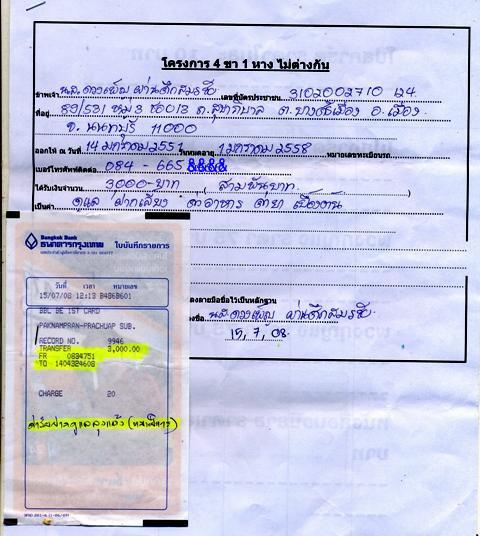 โครงการ 4 ขา 1 หาง ไม่ต่างกัน
ข้าพเจ้า น.ส. ดวงเพ็ญ ผ่านศึกสมรชัย เลขที่บัตรประชาชน 3102002710 124
ที่อยู่ 89/531 หมู่ 3 ซอย 13 ต. บางศรีเมือง อ. เมือง
จ. นนทบุรี 11000
ออกให้ ณ วันที่ 14 มกราคม 2551 วันหมดอายุ 1 มกราคม 2558 หมายเลขทะเบียนรถ
เบอร์โทรศัพท์ติดต่อ 084 - 665
ได้รับเงินจำนวน 3000- บาท ( สามพันบาท )
เป็นค่า ดูแล ฝากเลี้ยง ค่าอาหาร ค่ายา เบื้องต้น
ลงลายมือชื่อไว้เป็นหลักฐาน
ลงชื่อ น.ส. ดวงเพ็ญ ผ่านศึกสมรชัย
15, 7, 08
Bangkok Bank
ธนาคารกรุงเทพ ใบบันทึกรายการ
วันที่ เวลา หมายเลข
15/07/08 12:13 B486B601
BBL BE 1ST CARD
PAKNAMPRAN-PRACHUAP SUB.
RECORD NO. 9946
TRANSFER 3,000.00
FR 0834751
TO 1404324608
CHARGE 20